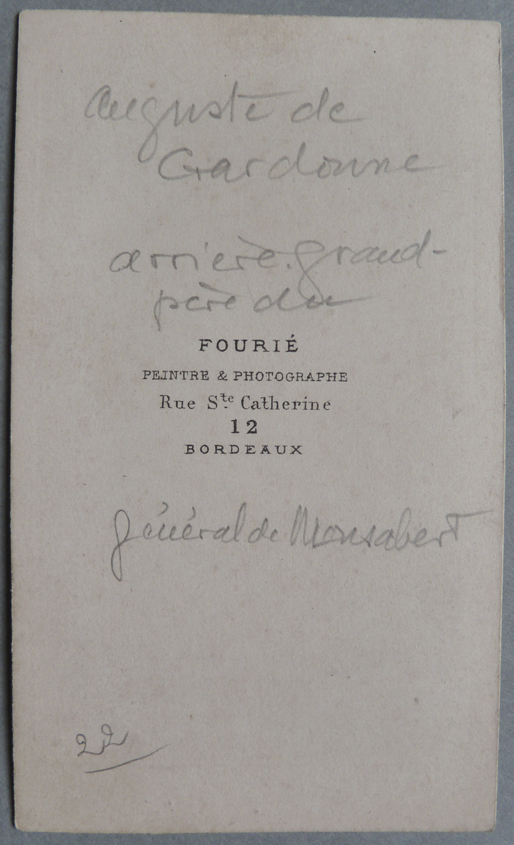 Auguste de
Gardonne
arrière-grand-
père du
FOURIÉ
PEINTRE & PHOTOGRAPHE
Rue Ste Catherine
12
BORDEAUX
Général de Monsabert
22